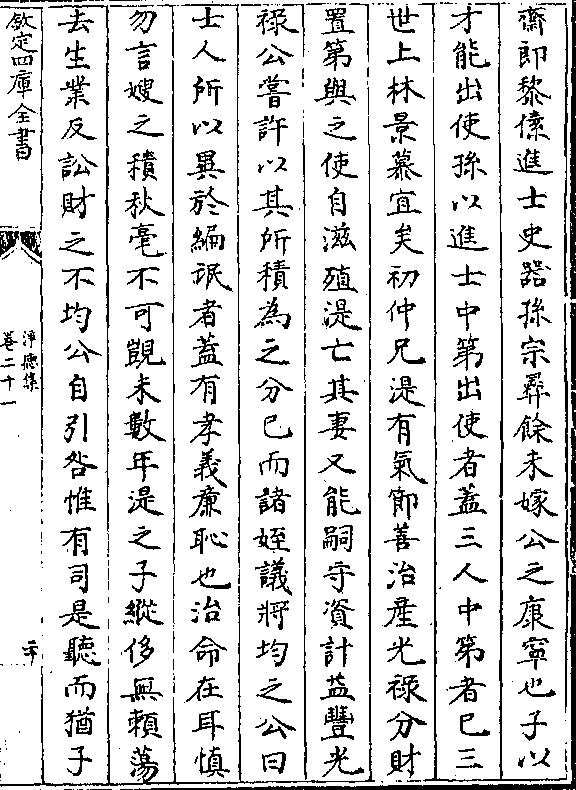 齋郎黎傃進士史器孫宗彞餘未嫁公之康寧也子以
才能出使孫以進士中第出使者蓋三人中第者已三
世上林景慕宜矣初仲兄湜有氣節善治產光祿分財
置第與之使自滋殖湜亡其妻又能嗣守資計益豐光
祿公嘗許以其所積為之分已而諸姪議將均之公曰
士人所以異於編氓者蓋有孝義廉恥也治命在耳慎
勿言嫂之積秋毫不可覬未數年湜之子縱侈無賴蕩
去生業反訟財之不均公自引咎惟有司是聽而猶子
欽定四庫全書
淨德集
卷二十一
二十